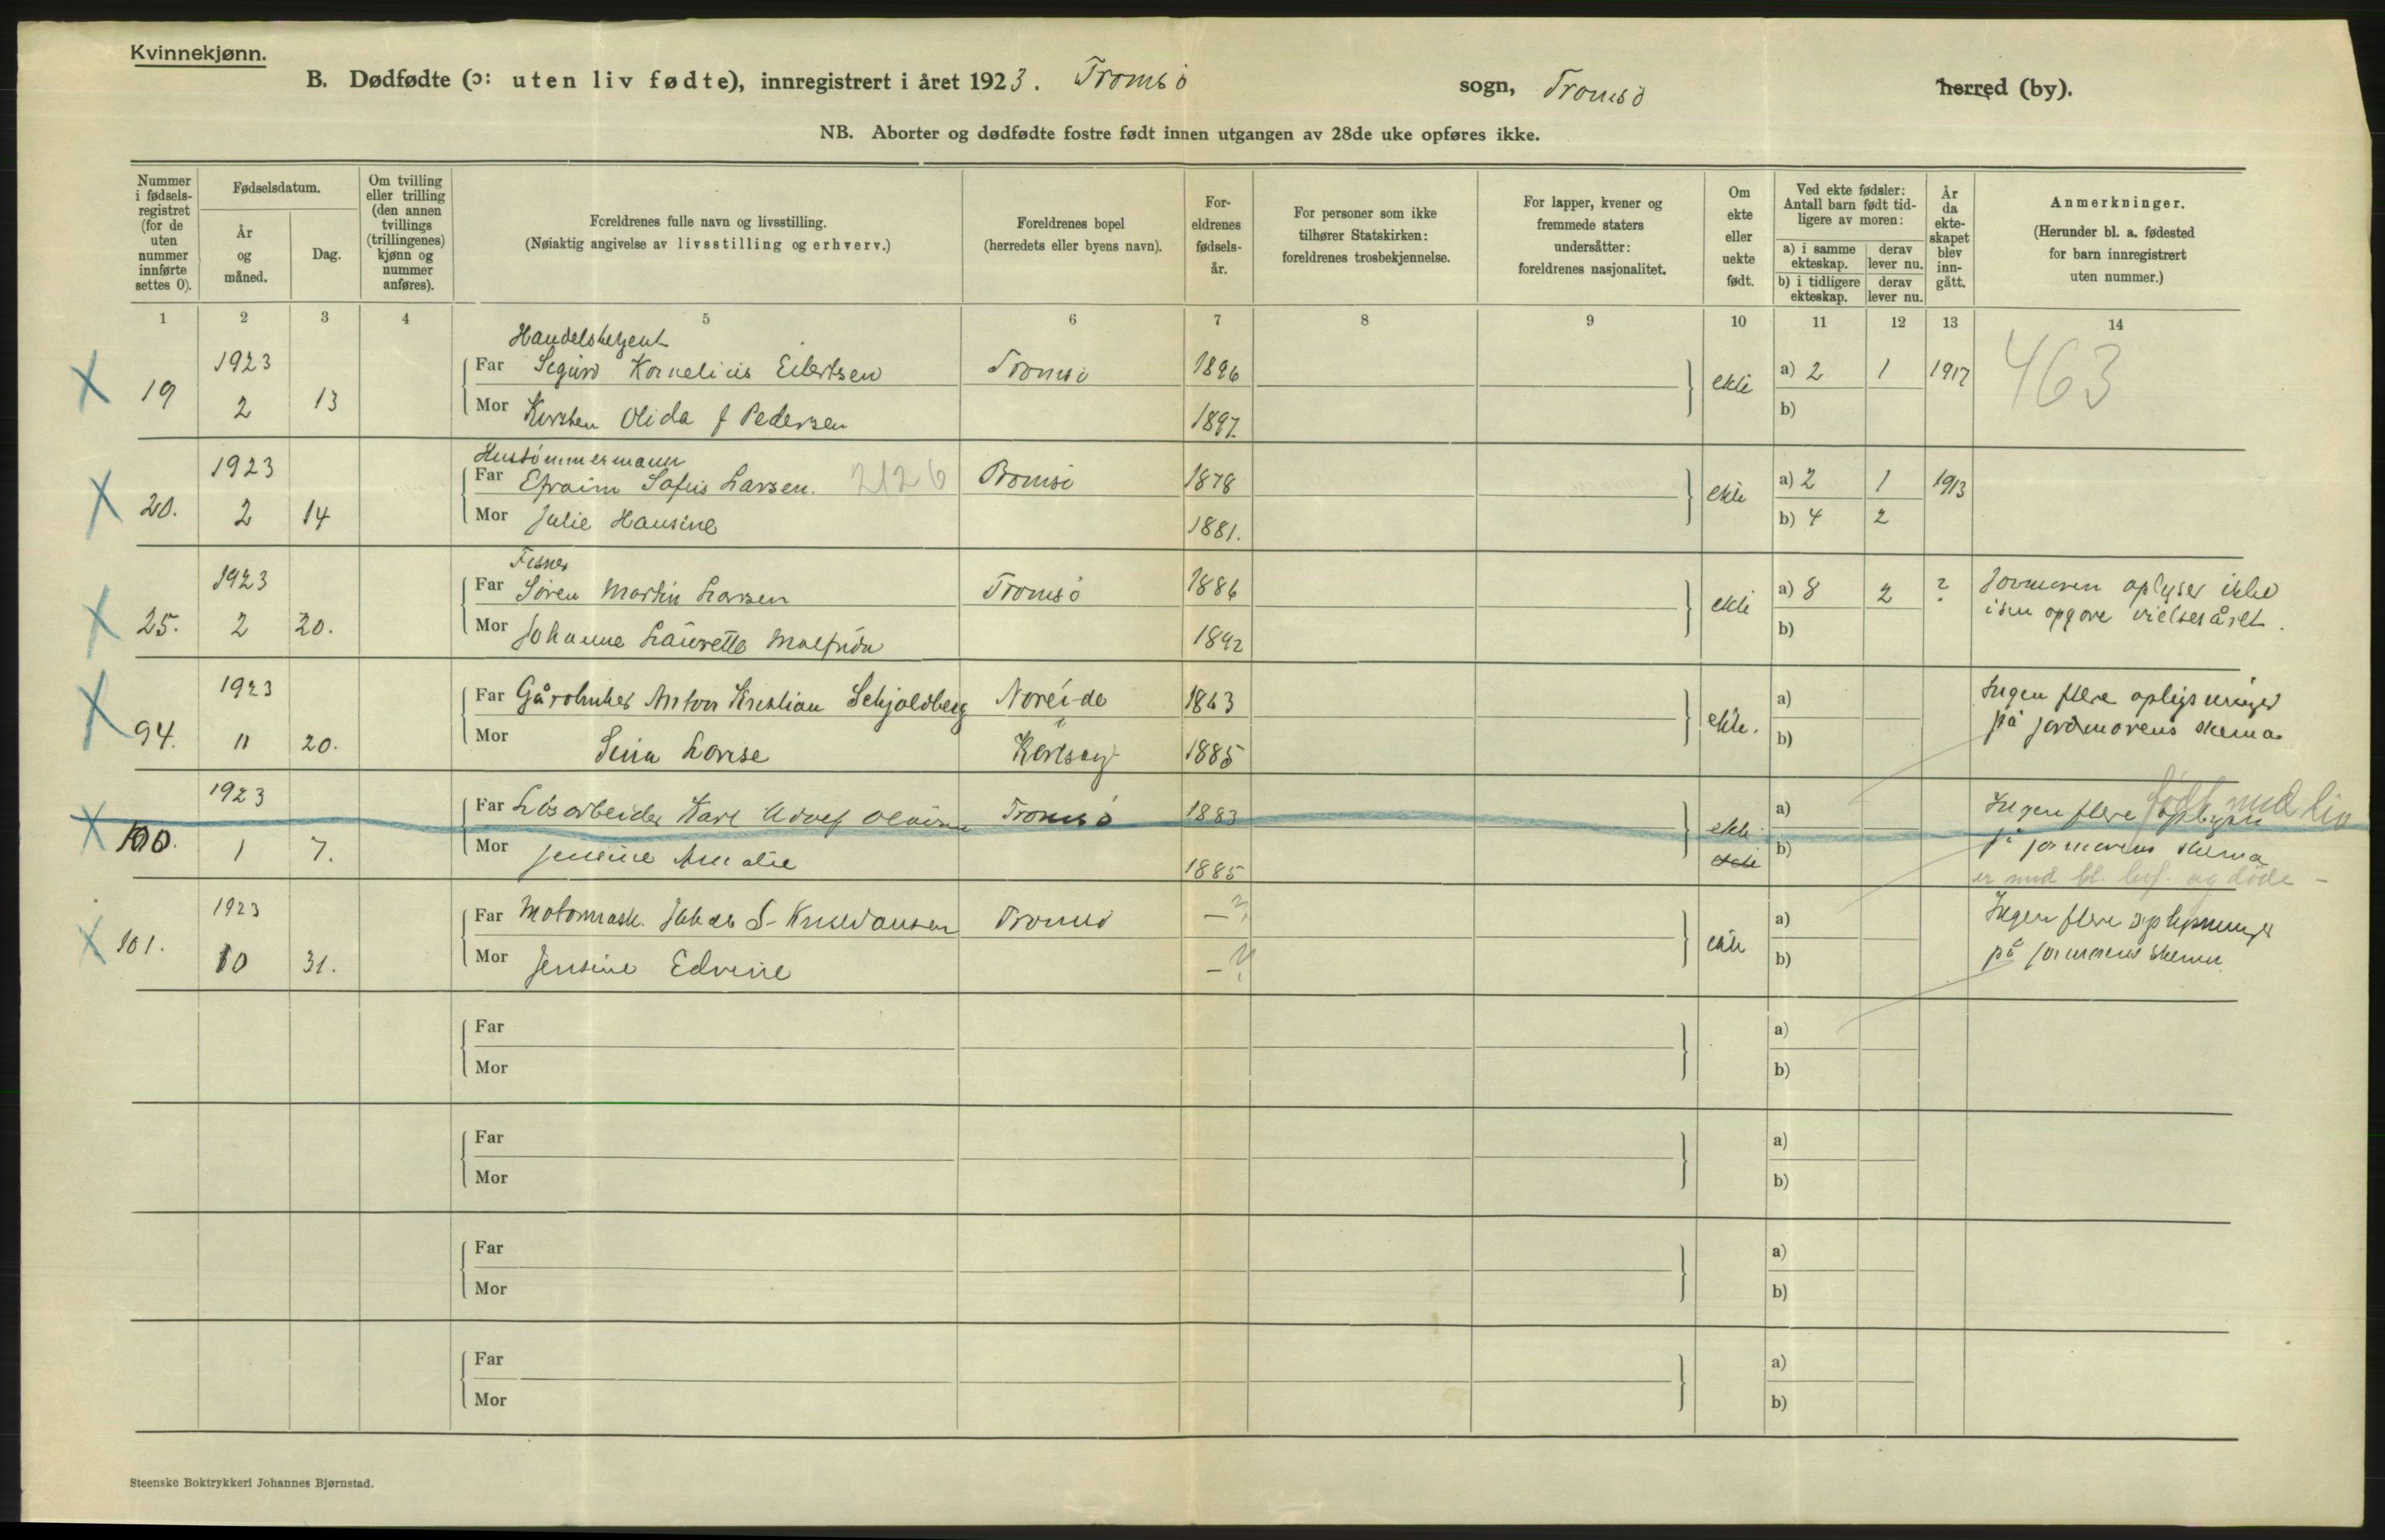 Kvinnekjønn.
B. Dødfødte (ɔ: uten liv fødte), innregistrert i året 1923. Tromsö sogn, Tromsö herred (by).
NB. Aborter og dødfødte fostre født innen utgangen av 28de uke opføres ikke.
Nummer i fødsels-registret (for de uten nummer innførte settes 0).
Fødselsdatum.
År og måned.
Dag.
Om tvilling eller trilling (den annen tvillings (trillingenes) kjønn og nummer anføres).
Foreldrenes fulle navn og livsstilling.
(Nøiaktig angivelse av livsstilling og erhverv.)
Foreldrenes bopel
(herredets eller byens navn).
For-eldrenes fødsels-år.
For personer som ikke tilhører Statskirken: foreldrenes trosbekjennelse.
For lapper, kvener og fremmede staters undersåtter: foreldrenes nasjonalitet.
Om ekte eller uekte født.
Ved ekte fødsler: Antall barn født tid-ligere av moren:
a) i samme ekteskap.
derav lever nu.
b) i tidligere ekteskap.
derav lever nu.
År da ekte-skapet blev inn-gått.
Anmerkninger.
(Herunder bl. a. fødested for barn innregistrert uten nummer.)
1 2 3 4 5 6 7 8 9 10 11 12 13 14
X 19 1923 2 13
Far Sigurd Kornelius Eilertsen Tromsö 1896 ekte a) 2 1 1917 463
Mor Kirsten Olida f Pedersen 1897 b)
X 20. 1923 2 14
Hustömmermann
Far Efraim Sofus Larsen. 2126 Tromsö 1878 ekte a) 2 1 1913
Mor Julie Hansine 1881. b) 4 2
X 25. 1923 2 20.
Fisker
Far Sören Martin Larsen Tromsö 1886 ekte a) 8 2 ? Jormoren oplyser ikke
Mor Johanne Laurette 1892 b) opgave vielsesåret.
X 94. 1923 11 20.
Far Gårdbruker Anton Kristian Schjoldberg 1863 ekte. a) Ingen flere oplysninger
Mor Sina Lovise Karlsöy 1885 b) på jordmorens skema
X 100. 1923 1 7.
Far Løsarbeider Karl Adolf Tromsö 1883 ekte a) Ingen flere født med liv
Mor Jensine Amalie 1885 ekte b) på jormorens skema
er med bl. lev. og döde -
X 101. 1923 10 31.
Far Jakob S. Tromsö - ? ekte a) Ingen flere oplysninger
Mor Jensine Edvine - ? b) på jormorens skema
Far a)
Mor b)
Far a)
Mor b)
Far a)
Mor b)
Far a)
Mor b)
Steenske Boktrykkeri Johannes Bjørnstad.